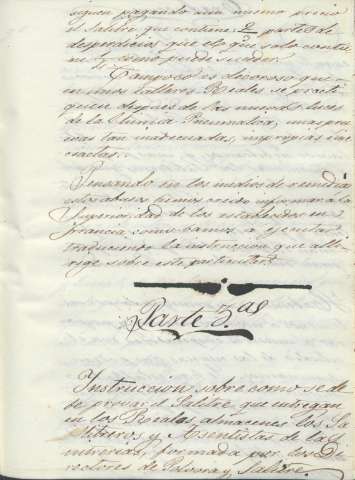 siguen pagando aun mismo precio
el Salitre que contiene 2 partes de
desperdicios que el que solo contie
ne 7 como puede suceder.
Tampoco es decoroso que
en unos talleres Reales se practi
quen despues de las nuevas luces
de la Chimica Pneumatica, unas prue
vas tan inadecuadas, impropias e ine
xactas.
Pensando en los medios de remediar
estos abusos hemos creido informar a la
Superioridad de los establecidos en
Francia como bamos a ejecutar
traduciendo la instruccion que alli
rige sobre este particular.
Parte 3.as
Instruccion sobre como se de
be provar el Salitre que entregan
en los Reales almacenes los Sa
litreros y Asentistas de la
intrerias, formada por los Di
rectores de Polvora y Salitre.